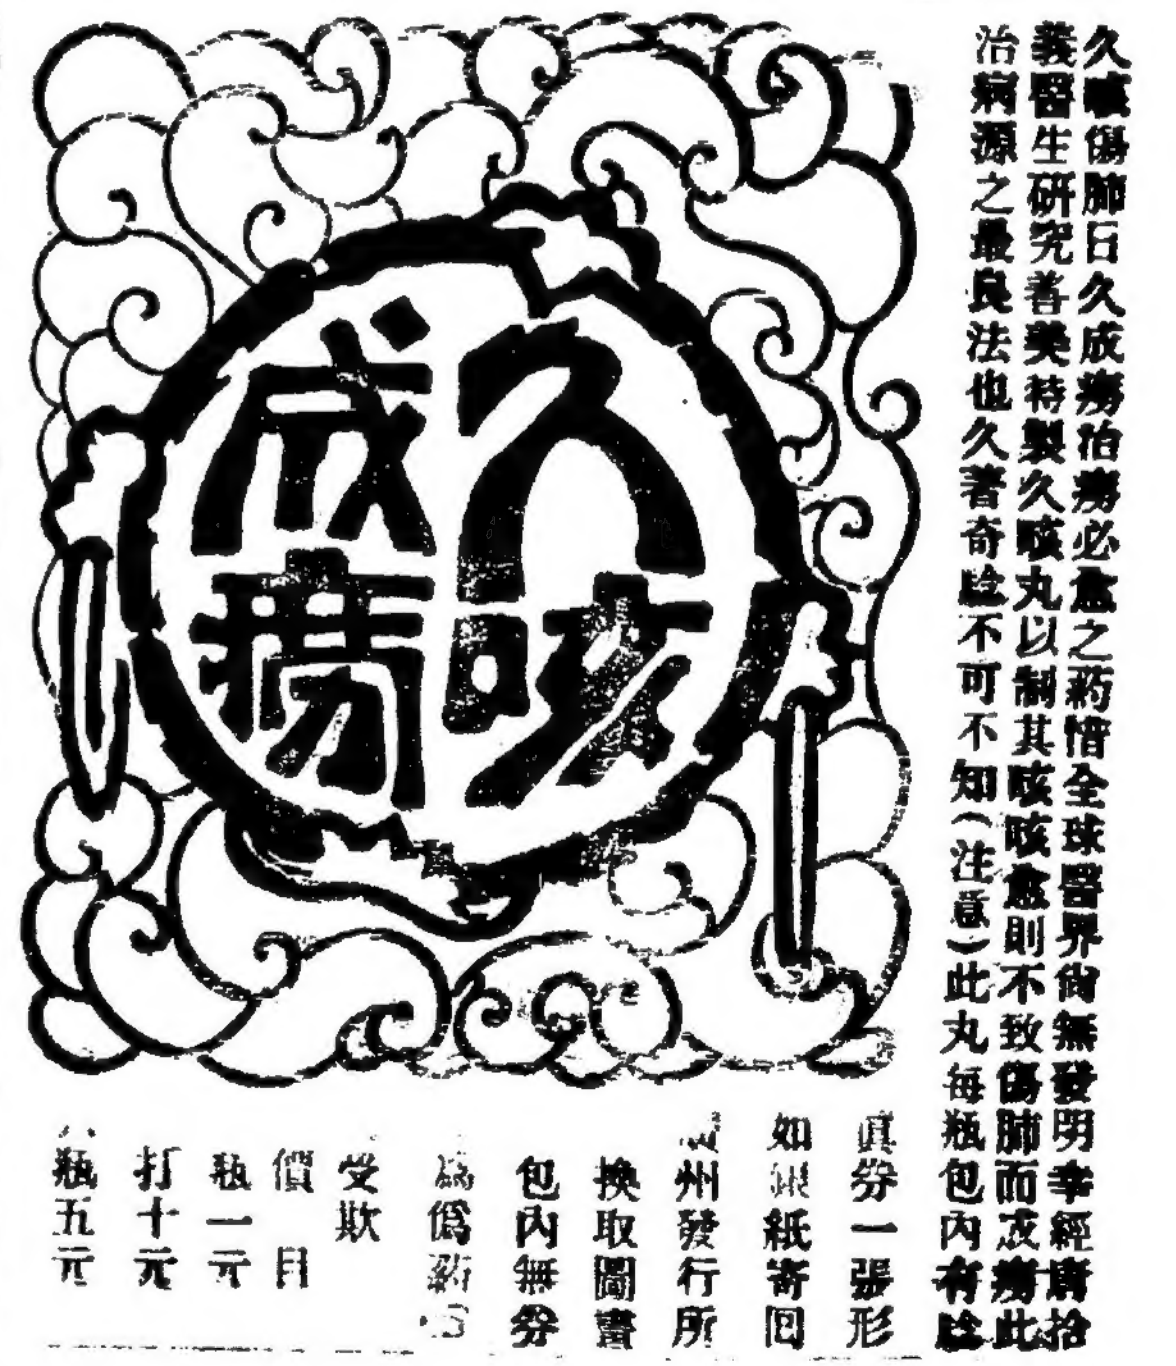 久咳傷肺日久成癆治癆必愈之药惜全球醫界尚無發明幸經唐拾
義醫生研究善美特製久咳丸以制其咳咳愈則不致傷肺而成癆此
治病源之最良法也久著奇驗不可不知（注意）此丸每瓶包內有驗
久咳
成癆
真券一張形
如銀紙寄回
州發行所
換取圖書
包內無券
為偽药
受欺
價目
瓶一元
打十元
瓶五元